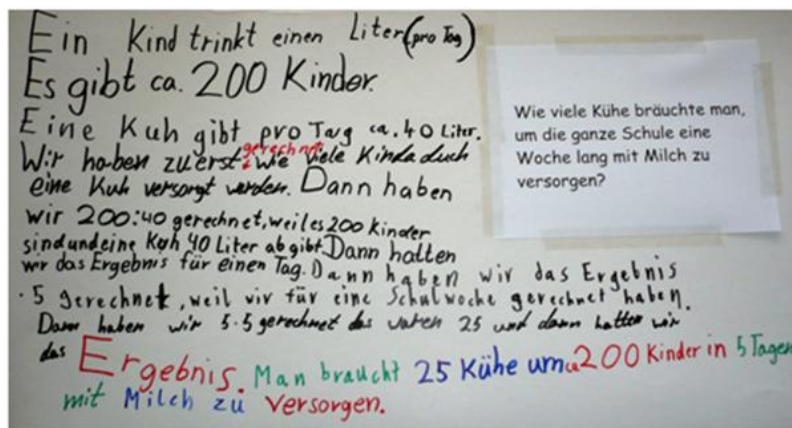 Ein Kind trinkt einen Liter (pro Tag)
Es gibt ca. 200 Kinder.
Eine Kuh gibt pro Tag ca. 40 Liter.
gerechnet
Wir haben zuerst wie viele Kinda duch
eine Kuh versorgt werden. Dann haben
wir 200:40 gerechnet, weil es 200 Kinder
sind und eine Kuh 40 Liter ab gibt. Dann hatten
wir das Ergebnis für einen Tag. Dann haben wir das Ergebnis
· 5 gerechnet, weil wir für eine Schulwoche gerechnet haben.
Dann haben wir 5·5 gerechnet das waren 25 und dann hatten wir
das Ergebnis. Man braucht 25 Kühe um ca 200 Kinder in 5 Tagen
mit Milch zu versorgen.
Wie viele Kühe bräuchte man,
um die ganze Schule eine
Woche lang mit Milch zu
versorgen?